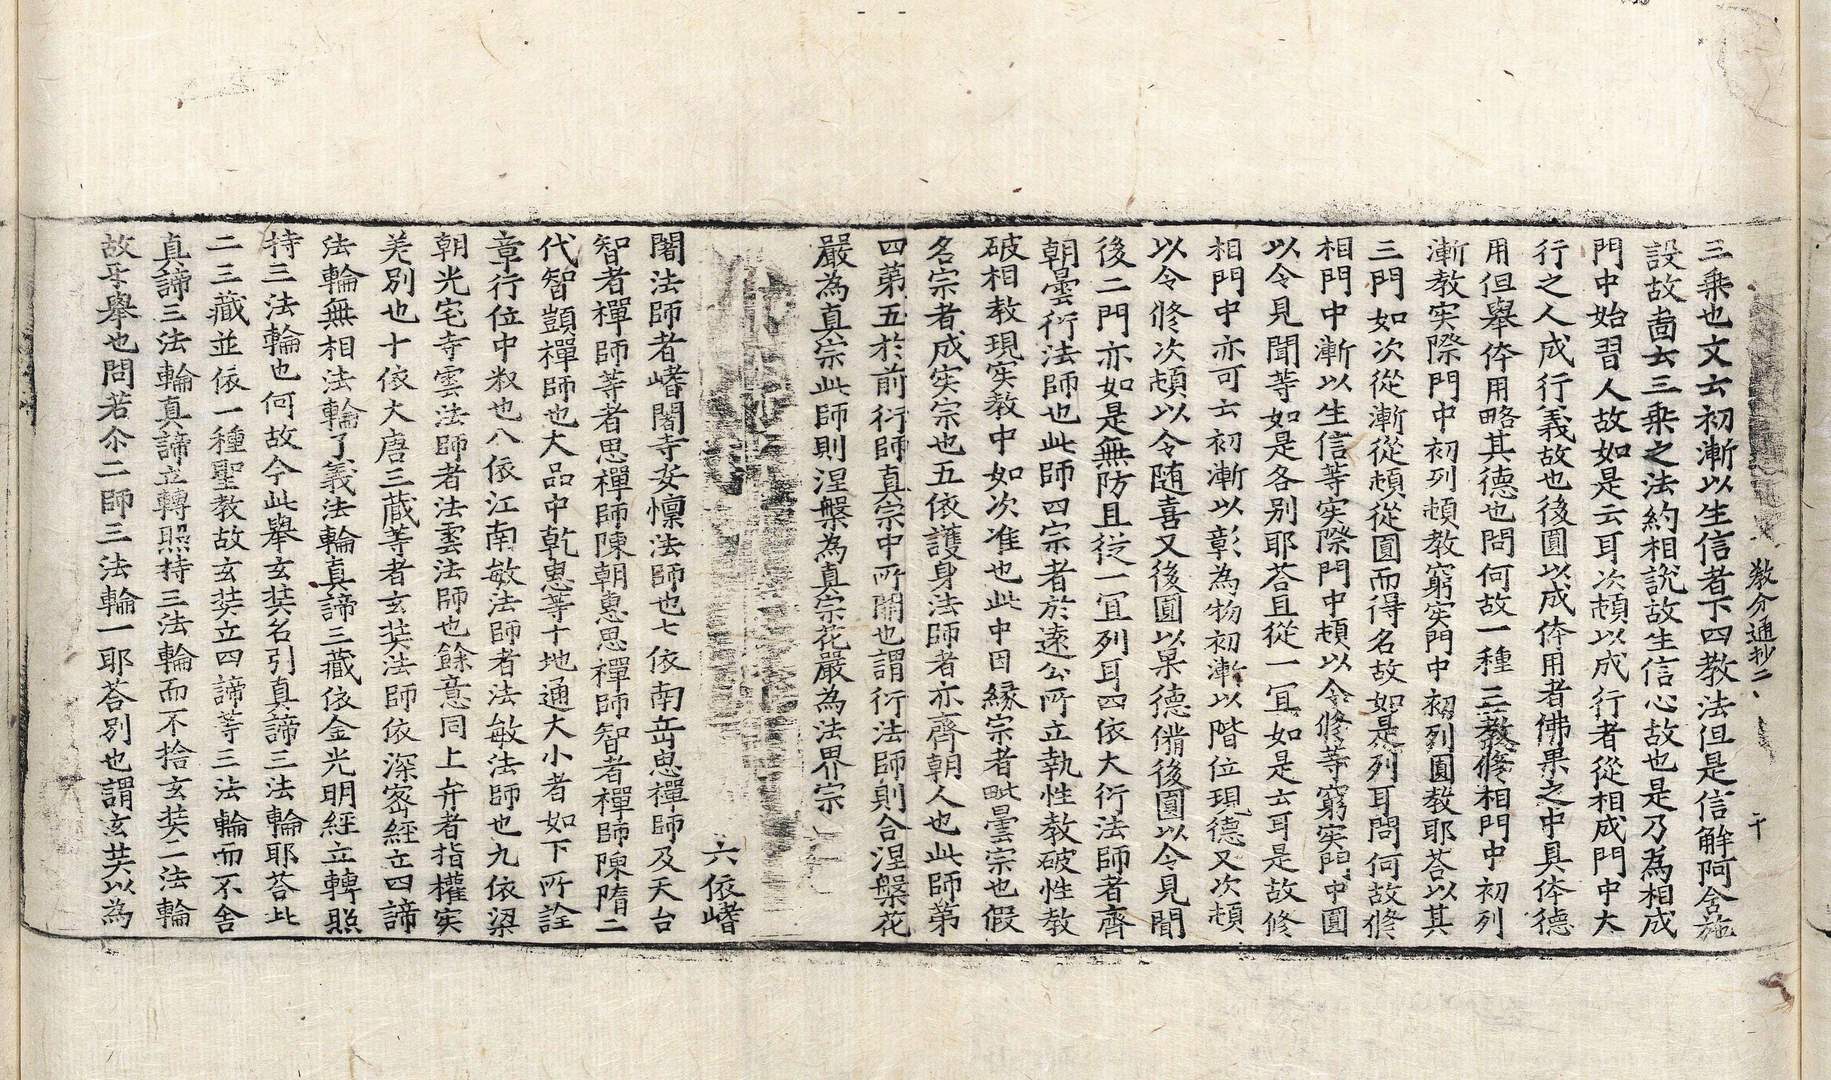 教分通抄二、　干
三乘也文云初漸以生信者下四教法但是信解阿含施
設故啚去三乘之法約相說故生信心故也是乃為相成
門中始習人故如是云耳次頓以成行者從相成門中大
行之人成行義故也後圓以成体用者佛果之中具体德
用但舉体用略其德也問何故一種三教修相門中初列
漸教实際門中初列頓教窮实門中初列圓教耶荅以其
三門如次從漸從頓從圓而得名故如是列耳問何故修
相門中漸以生信等实際門中頓以令修等窮实門中圓
以令見聞等如是各別耶荅且從一冝如是云耳是故修
相門中亦可云初漸以彰為物初漸以階位現德又次頓
以令修次頓以令随喜又後圓以果德俻後圓以令見聞
後二門亦如是無防且從一冝列耳四依大衍法師者齊
朝曇衍法師也此師四宗者於遠公所立執性教破性教
破相教現实教中如次准也此中因緣宗者毗曇宗也假
名宗者成实宗也五依護身法師者亦齊朝人也此師第
四第五於前衍師真宗中所開也謂衍法師則合涅槃花
嚴為真宗此師則涅槃為真宗花嚴為法界宗
六依嵴
闍法師者嵴闍寺安懍法師也七依南岳思禪師及天台
智者禪師等者思禪師陳朝惠思禪師智者禪師陳隋二
代智顗禪師也大品中乾惠等十地通大小者如下所詮
章行位中叙也八依江南敏法師者法敏法師也九依梁
朝光宅寺雲法師者法雲法師也餘意同上弁者指權实
差別也十依大唐三藏等者玄奘法師依深密經立四諦
法輪無相法輪了義法輪真諦三藏依金光明經立轉照
持三法輪也何故今此舉玄奘名引真諦三法輪耶荅此
二三藏並依一種聖教故玄奘立四諦等三法輪而不舍
真諦三法輪真諦立轉照持三法輪而不捨玄奘二法輪
故𠄔舉也問若尒二師三法輪一耶荅別也謂玄奘以為